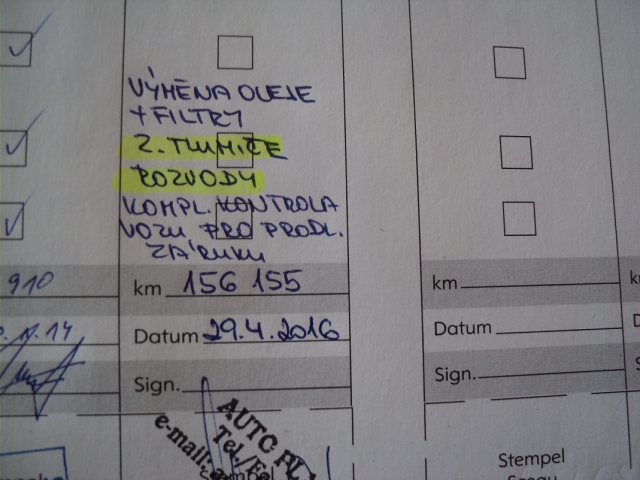 VÝMĚNA OLEJE
+ FILTRY
Z. TLUMIČE
ROZVODY
KOMPL. KONTROLA
VOZU PRO PRODL.
ZÁRUKU
910
km 156 155
km
Datum 29.4.2016
Datum
Sign.
Sign.
AUTO
Tel./
e-mail:
Stempel